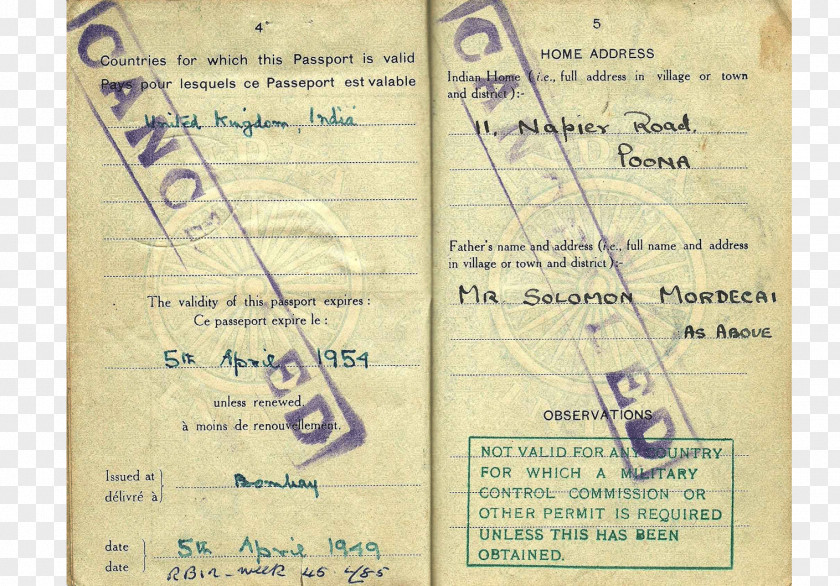 4
Countries for which this Passport is valid
Pays pour lesquels ce Passeport est valable
United Kingdom, India
The validity of this passport expires :
Ce passeport expire le :
5th April 1954
unless renewed.
à moins de renouvellement.
Issued at
délivré à
Bombay
date
date
5th April 1949
CANCELLED
5
HOME ADDRESS
Indian Home (i.e., full address in village or town
and district ):-
11, Napier Road.
POONA
Father's name and address (i.e., full name and address
in village or town and district ):-
MR SOLOMON MORDECAI
AS ABOVE
OBSERVATIONS
NOT VALID FOR ANY COUNTRY
FOR WHICH A MILITARY
CONTROL COMMISSION OR
OTHER PERMIT IS REQUIRED
UNLESS THIS HAS BEEN
OBTAINED.
CANCELLED